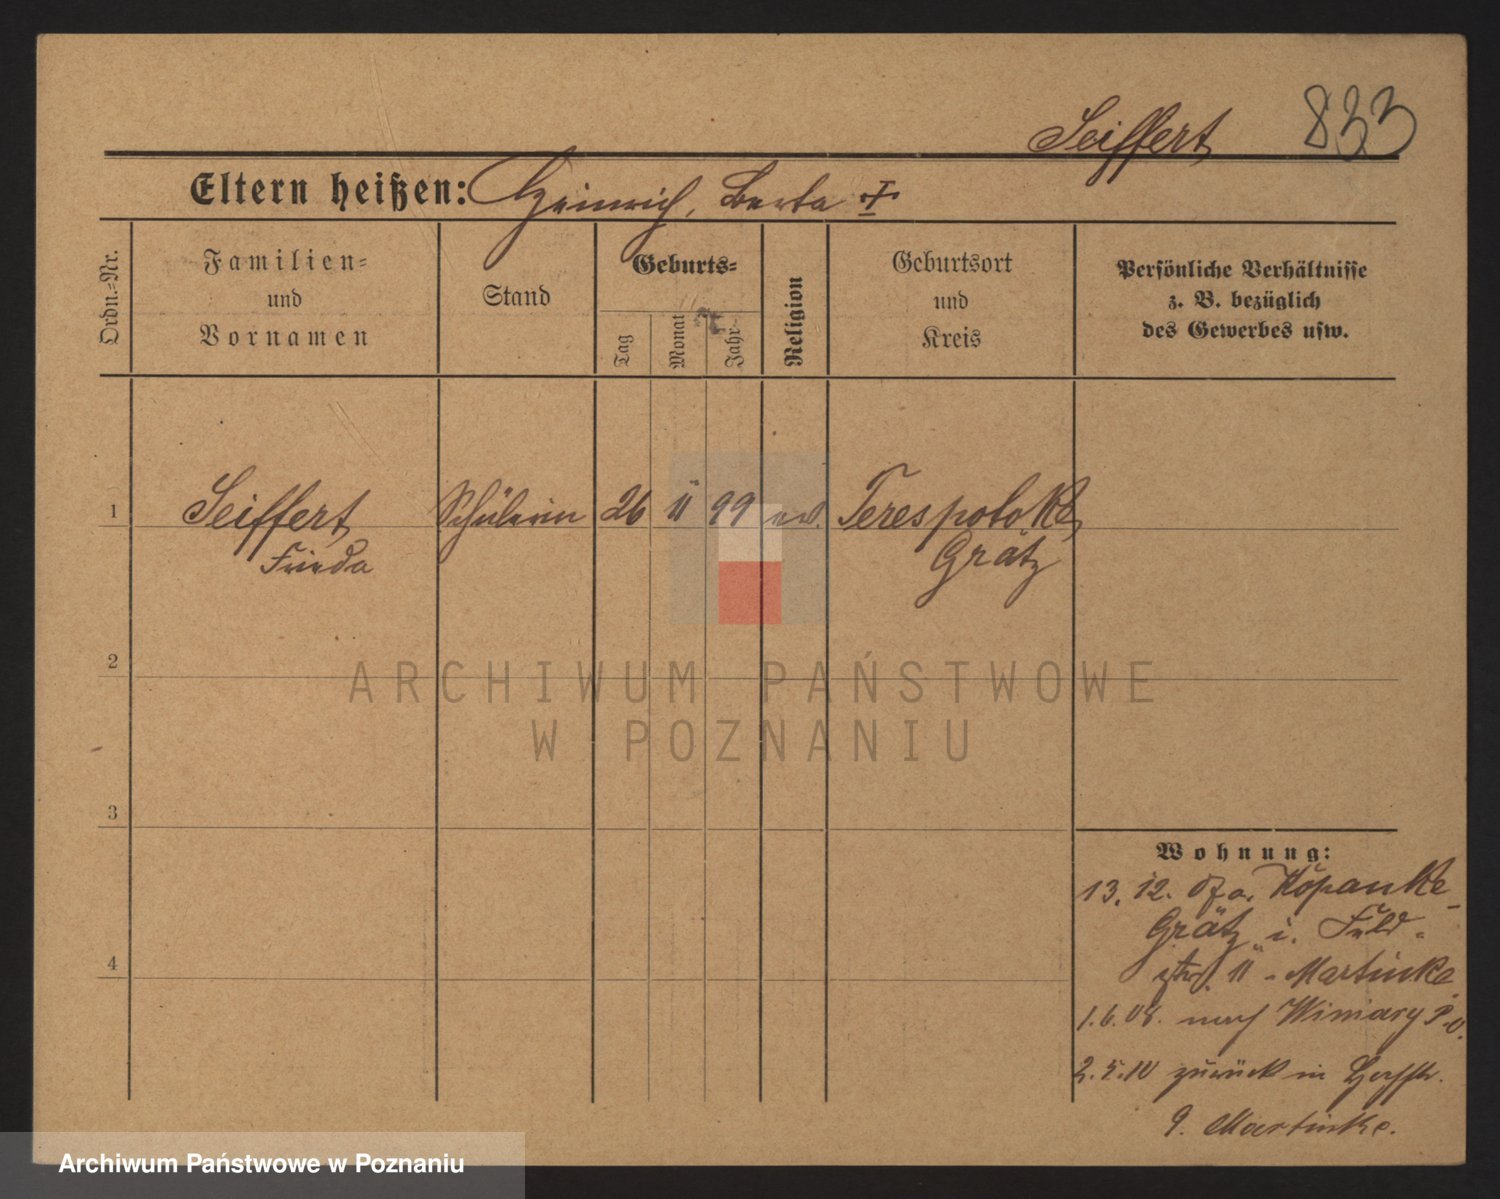 Seiffert 833
Eltern heißen: Heinrich, Berta ✝
Ordn.-Nr.
Familien-
und
Vornamen
Stand
Geburts-
Tag
Monat
Jahr
Religion
Geburtsort
und
Kreis
Persönliche Verhältnisse
z. B. bezüglich
des Gewerbes usw.
1 Seiffert Schülerin 26 II 99 ev. Terespotoke
Frieda Grätz
2
3
4
ARCHIWUM PAŃSTWOWE
W POZNANIU
Wohnung:
13. 12. Kopanke-
Grätz i. Feld-
str. 11 - Martinke
1.6.08. nach Winiary P.O.
2.5.10 zurück in
9. Martinke.
Archiwum Państwowe w Poznaniu